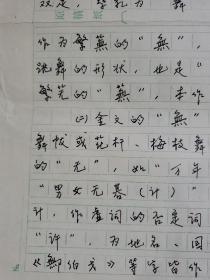 双足，
舞
作为繁芜的“無”，
跳舞的形状，也是“
繁芜的“蕪”，本作
(2)金文的“舞”
舞权或花杆、梅枝舞
的“无”，如“万年
“男女无暮(计)”
计，作虚词的否定词
“許”，为地名、国
《鄦伯戈》等字皆作